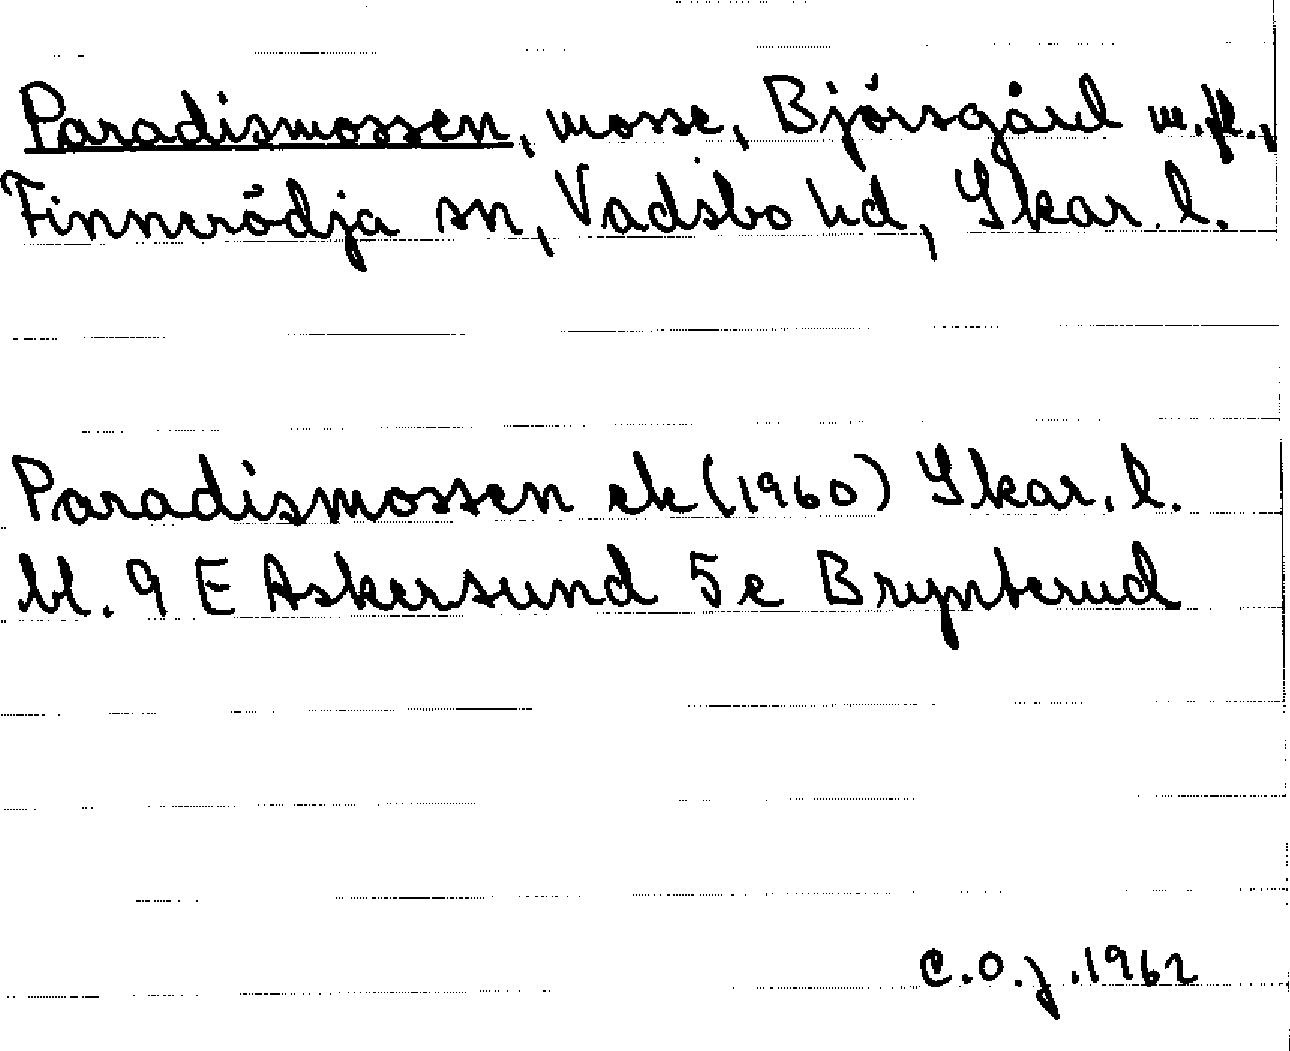 Paradismossen, mosse, Björsgård m.fl.,
Finnerödja sn, Vadsbo hd, Skar. l.
Paradismossen ek (1960) Skar. l.
bl. 9 E Askersund 5 e Brynterud
C.O.j. 1962